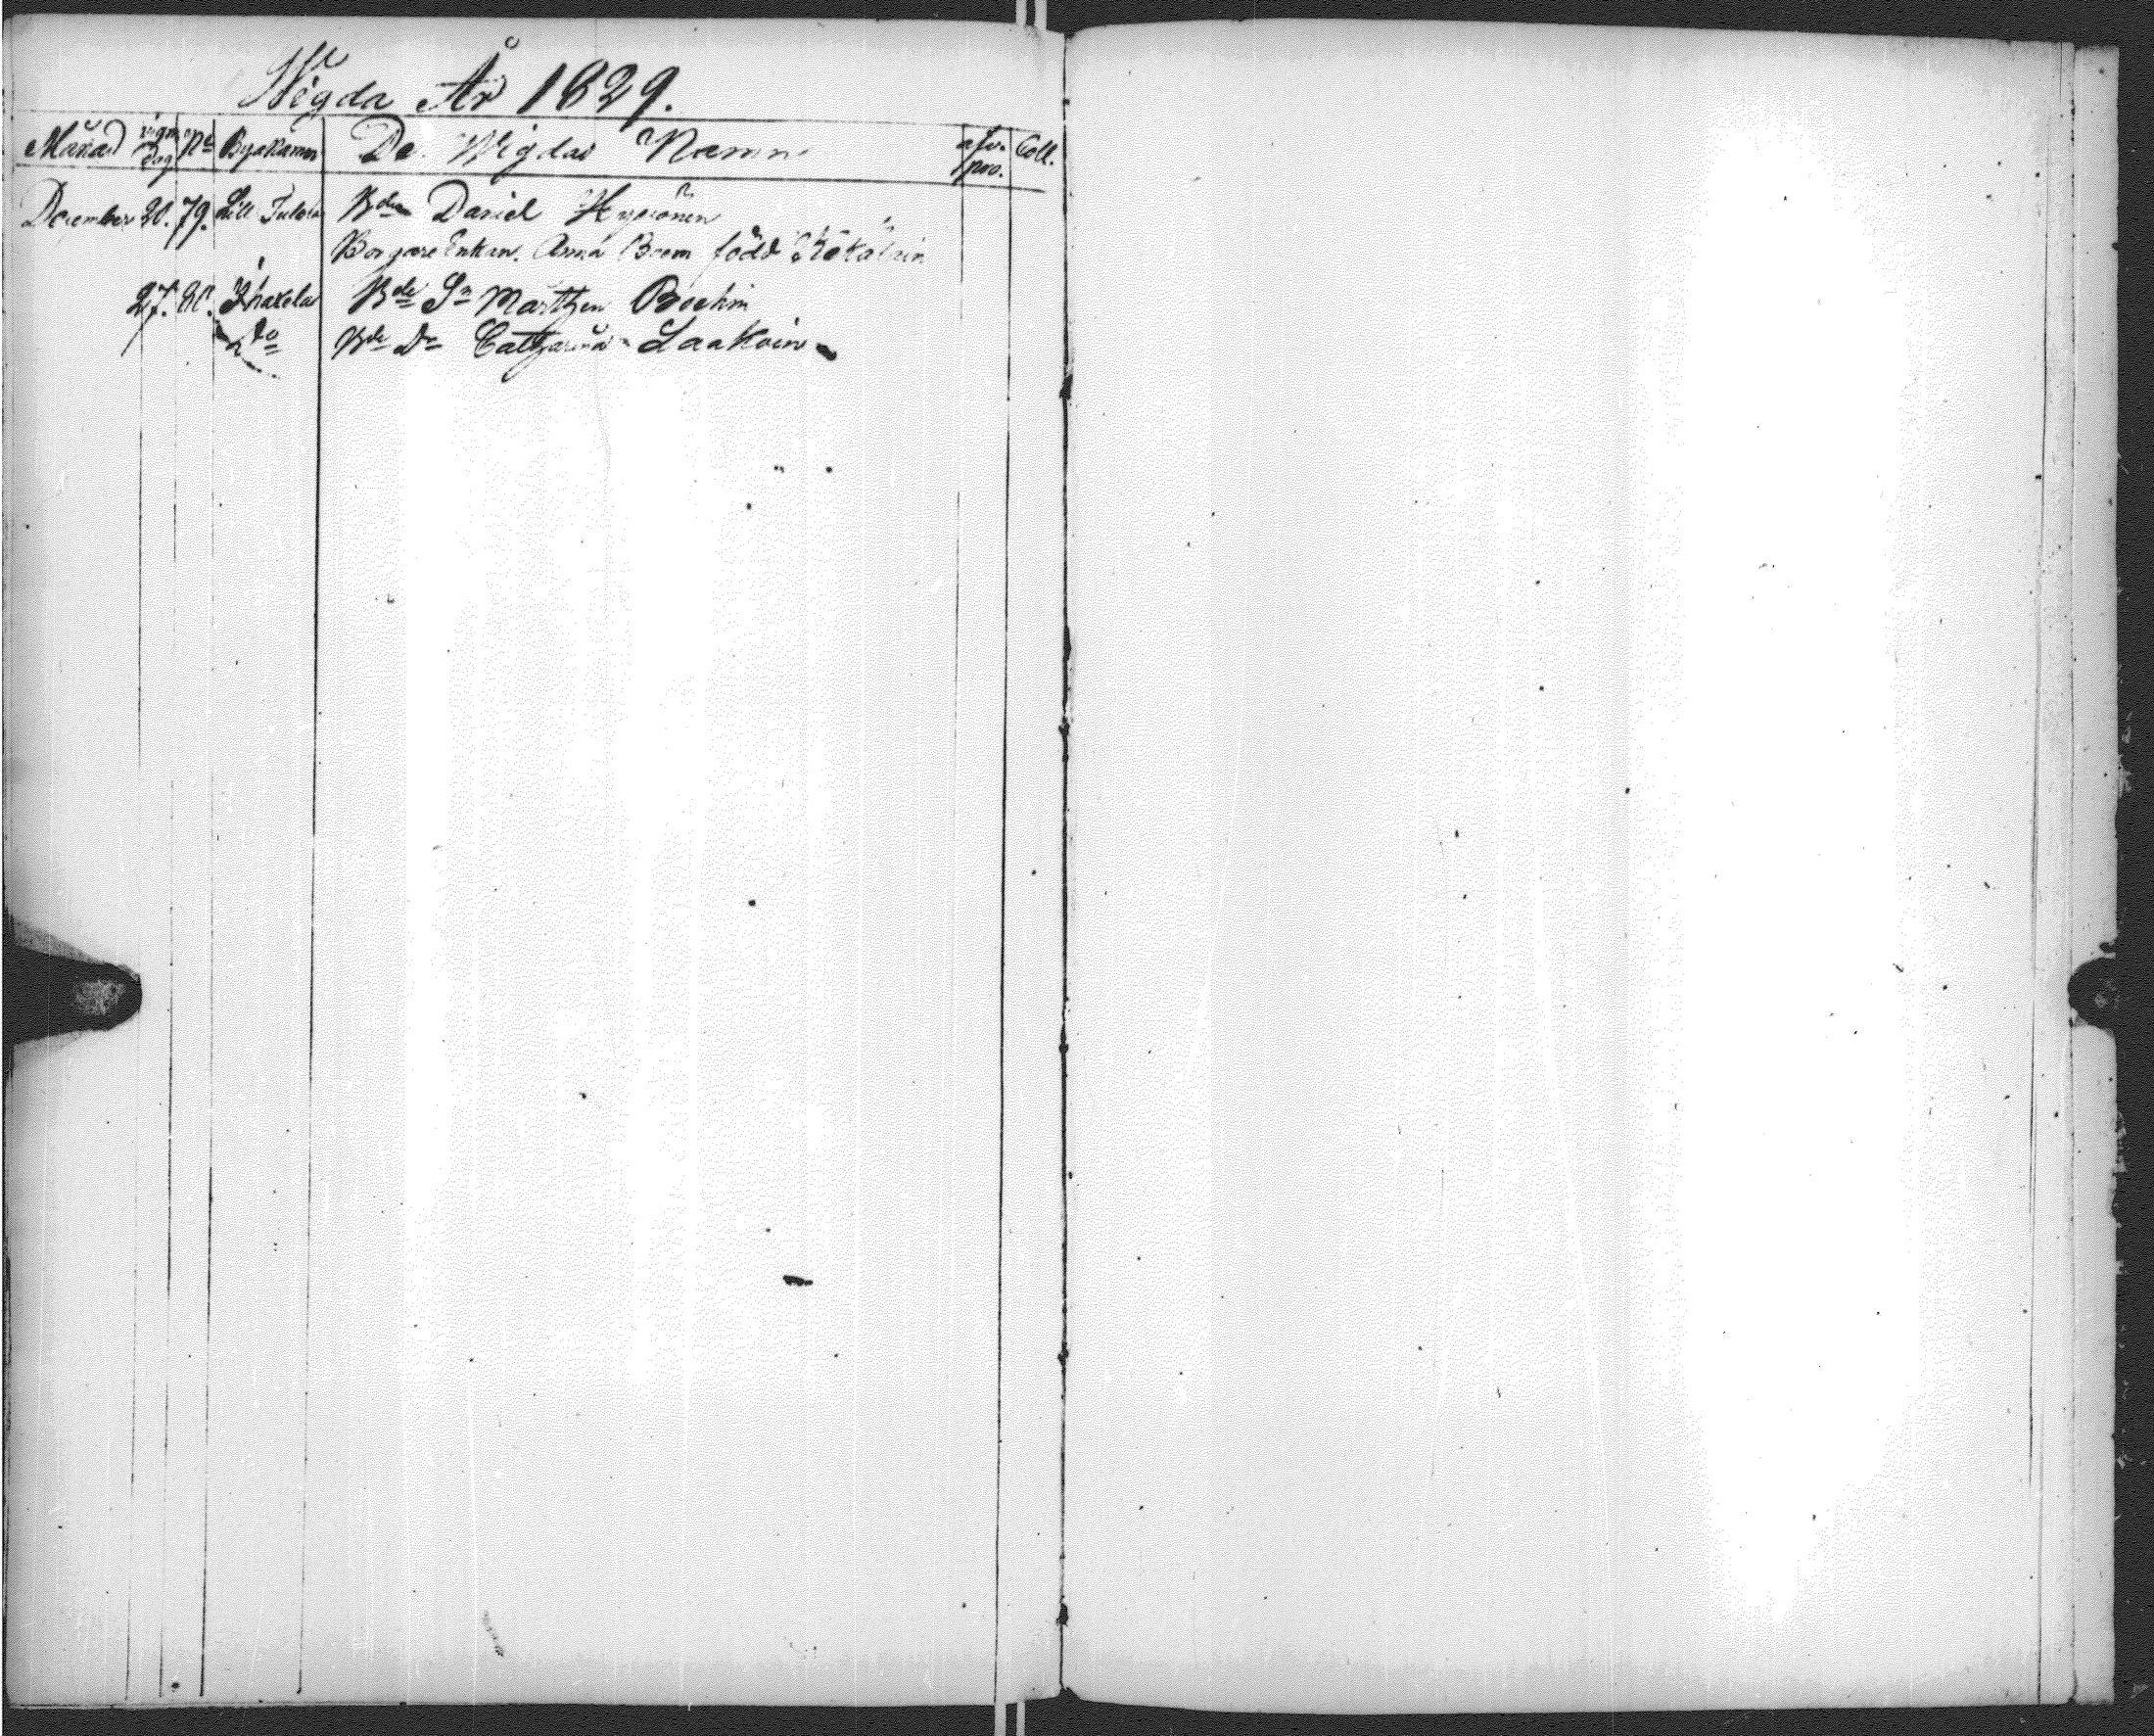 Wigda År 1829.
Månad vign. dag No Byanamn De Wigdas Namn afv. pro. Coll.
December 20. 79. Lill Tulola Bde Daniel Hyponen
Borgare Enkan Anna Boom född
27. 80. Bde Sn Marthen Boehm
do Bde Dr Catharina Laakoin